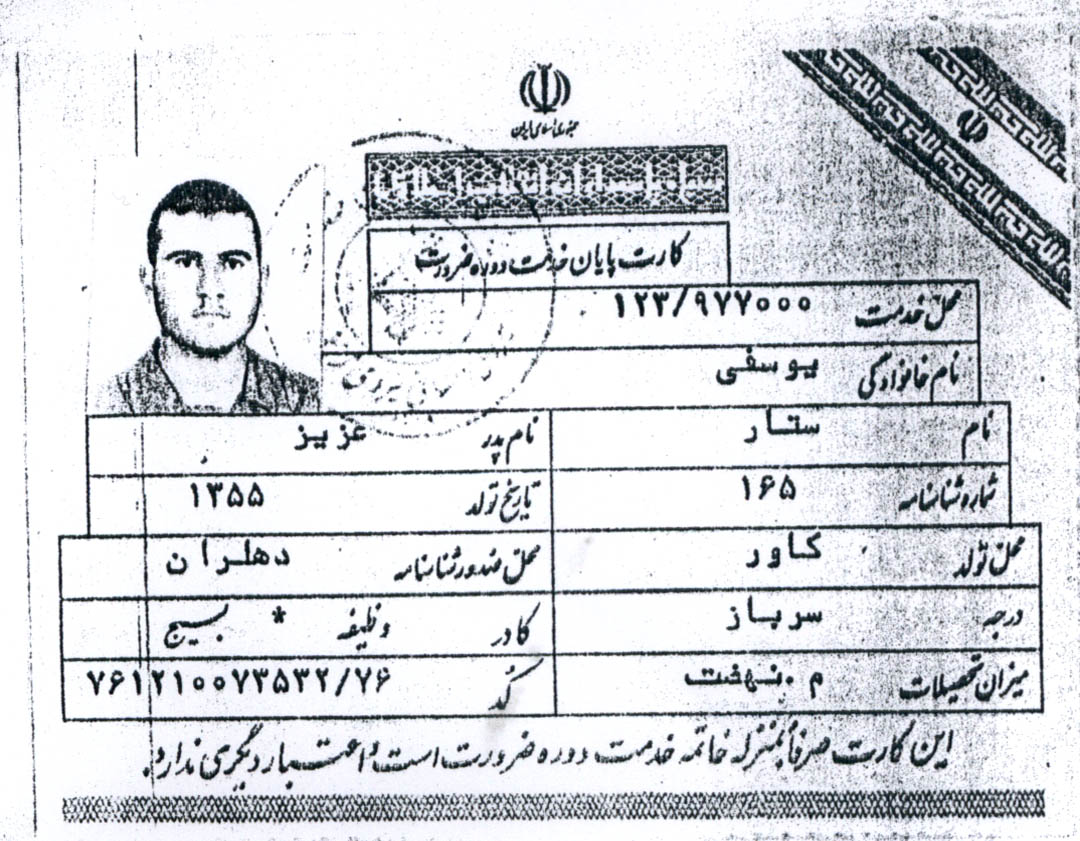 جمهوری اسلامی ایران
سپاه پاسداران انقلاب اسلامی
کارت پایان خدمت دوره ضرورت
محل خدمت ۱۲۳/۹۷۷۰۰۰
نام خانوادگی یوسفی
نام ستار نام پدر عزیز
شماره شناسنامه ۱۶۵ تاریخ تولد ۱۳۵۵
محل تولد کاور محل صدور شناسنامه دهلران
درجه سرباز کادر وظیفه * بسیج
میزان تحصیلات م.نهضت کد ۷۶۱۲۱۰۰۷۳۵۳۲/۷۶
این کارت صرفاً بمنزله خاتمه خدمت دوره ضرورت است و اعتبار دیگری ندارد.